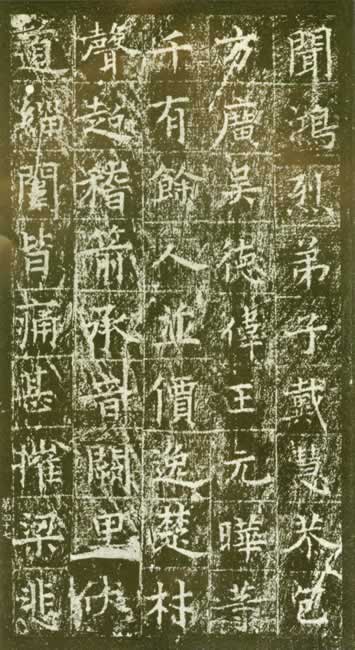 聞鴻烈弟子戴慧恭包
方廣吳德偉王元曄等
千有餘人並價逸楚材
聲超稽箭承音闕里伏
道緇闈皆痛甚摧梁悲